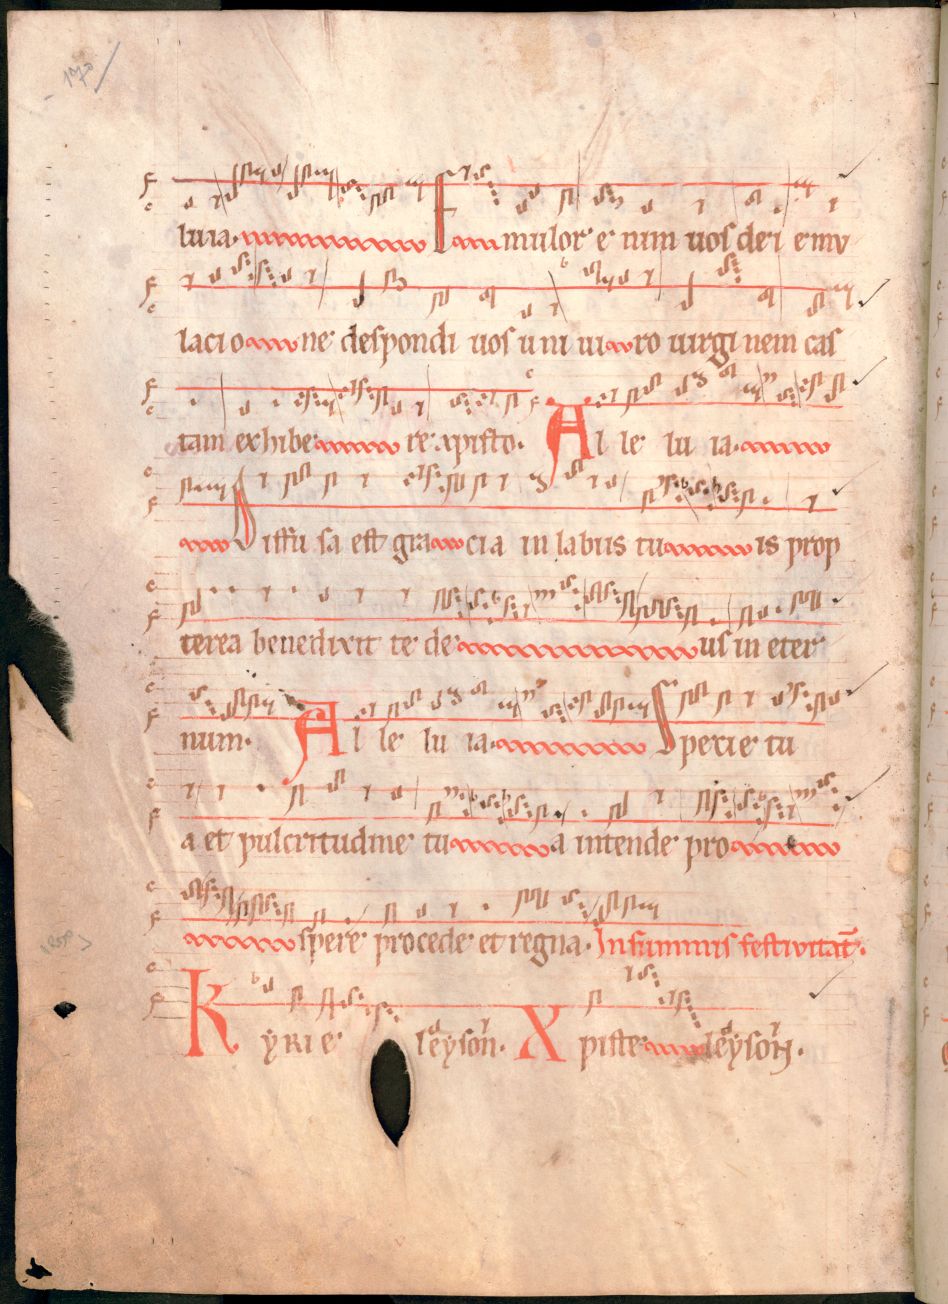 170
luia. Emulor enim uos dei emu
lacione despondi uos uni uiro uirginem cas
tam exhibere xpisto. Alle luia.
Diffusa est gracia in labiis tuis prop
terea benedixit te deus in eter
num. Alle luia. Specie tu
a et pulcritudine tua intende pro
spere procede et regna. In summis festivitat̄.
Kyrie leyson. Xpiste leyson.